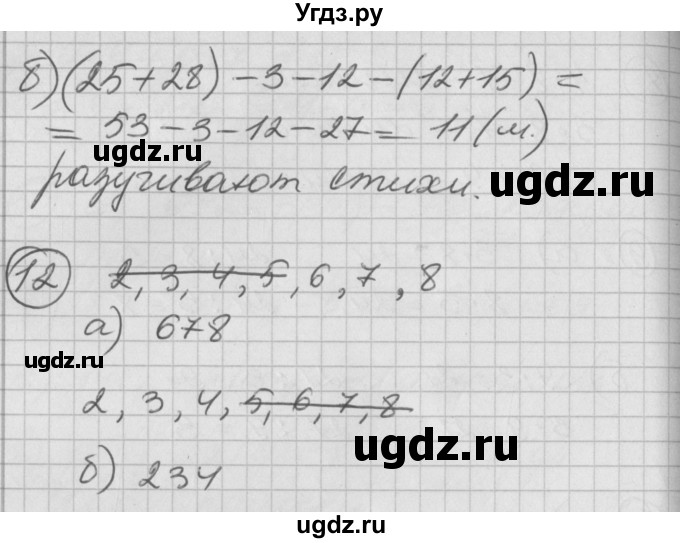 Угдз.ру
б) (25+28) - 3 - 12 - (12+15) =
= 53 - 3 - 12 - 27 = 11 (м.)
ugdz.ru
разучивают стихи.
ugdz.ru
12 2, 3, 4, 5, 6, 7, 8
а) 678
ugdz.ru
2, 3, 4, 5, 6, 7, 8
ugdz.ru
б) 234
ugdz.ru
ugdz.ru